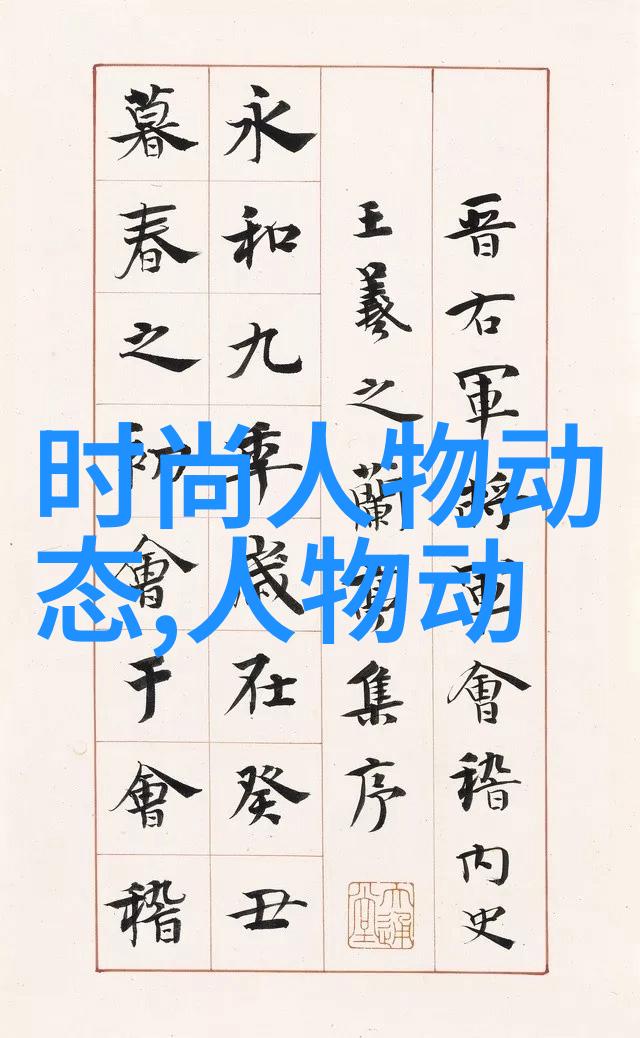 晋右軍將軍會稽内史
王羲之蘭亭集序
永和九年歲在癸丑
暮春之初會于會稽
时尚人物动
态,人物动